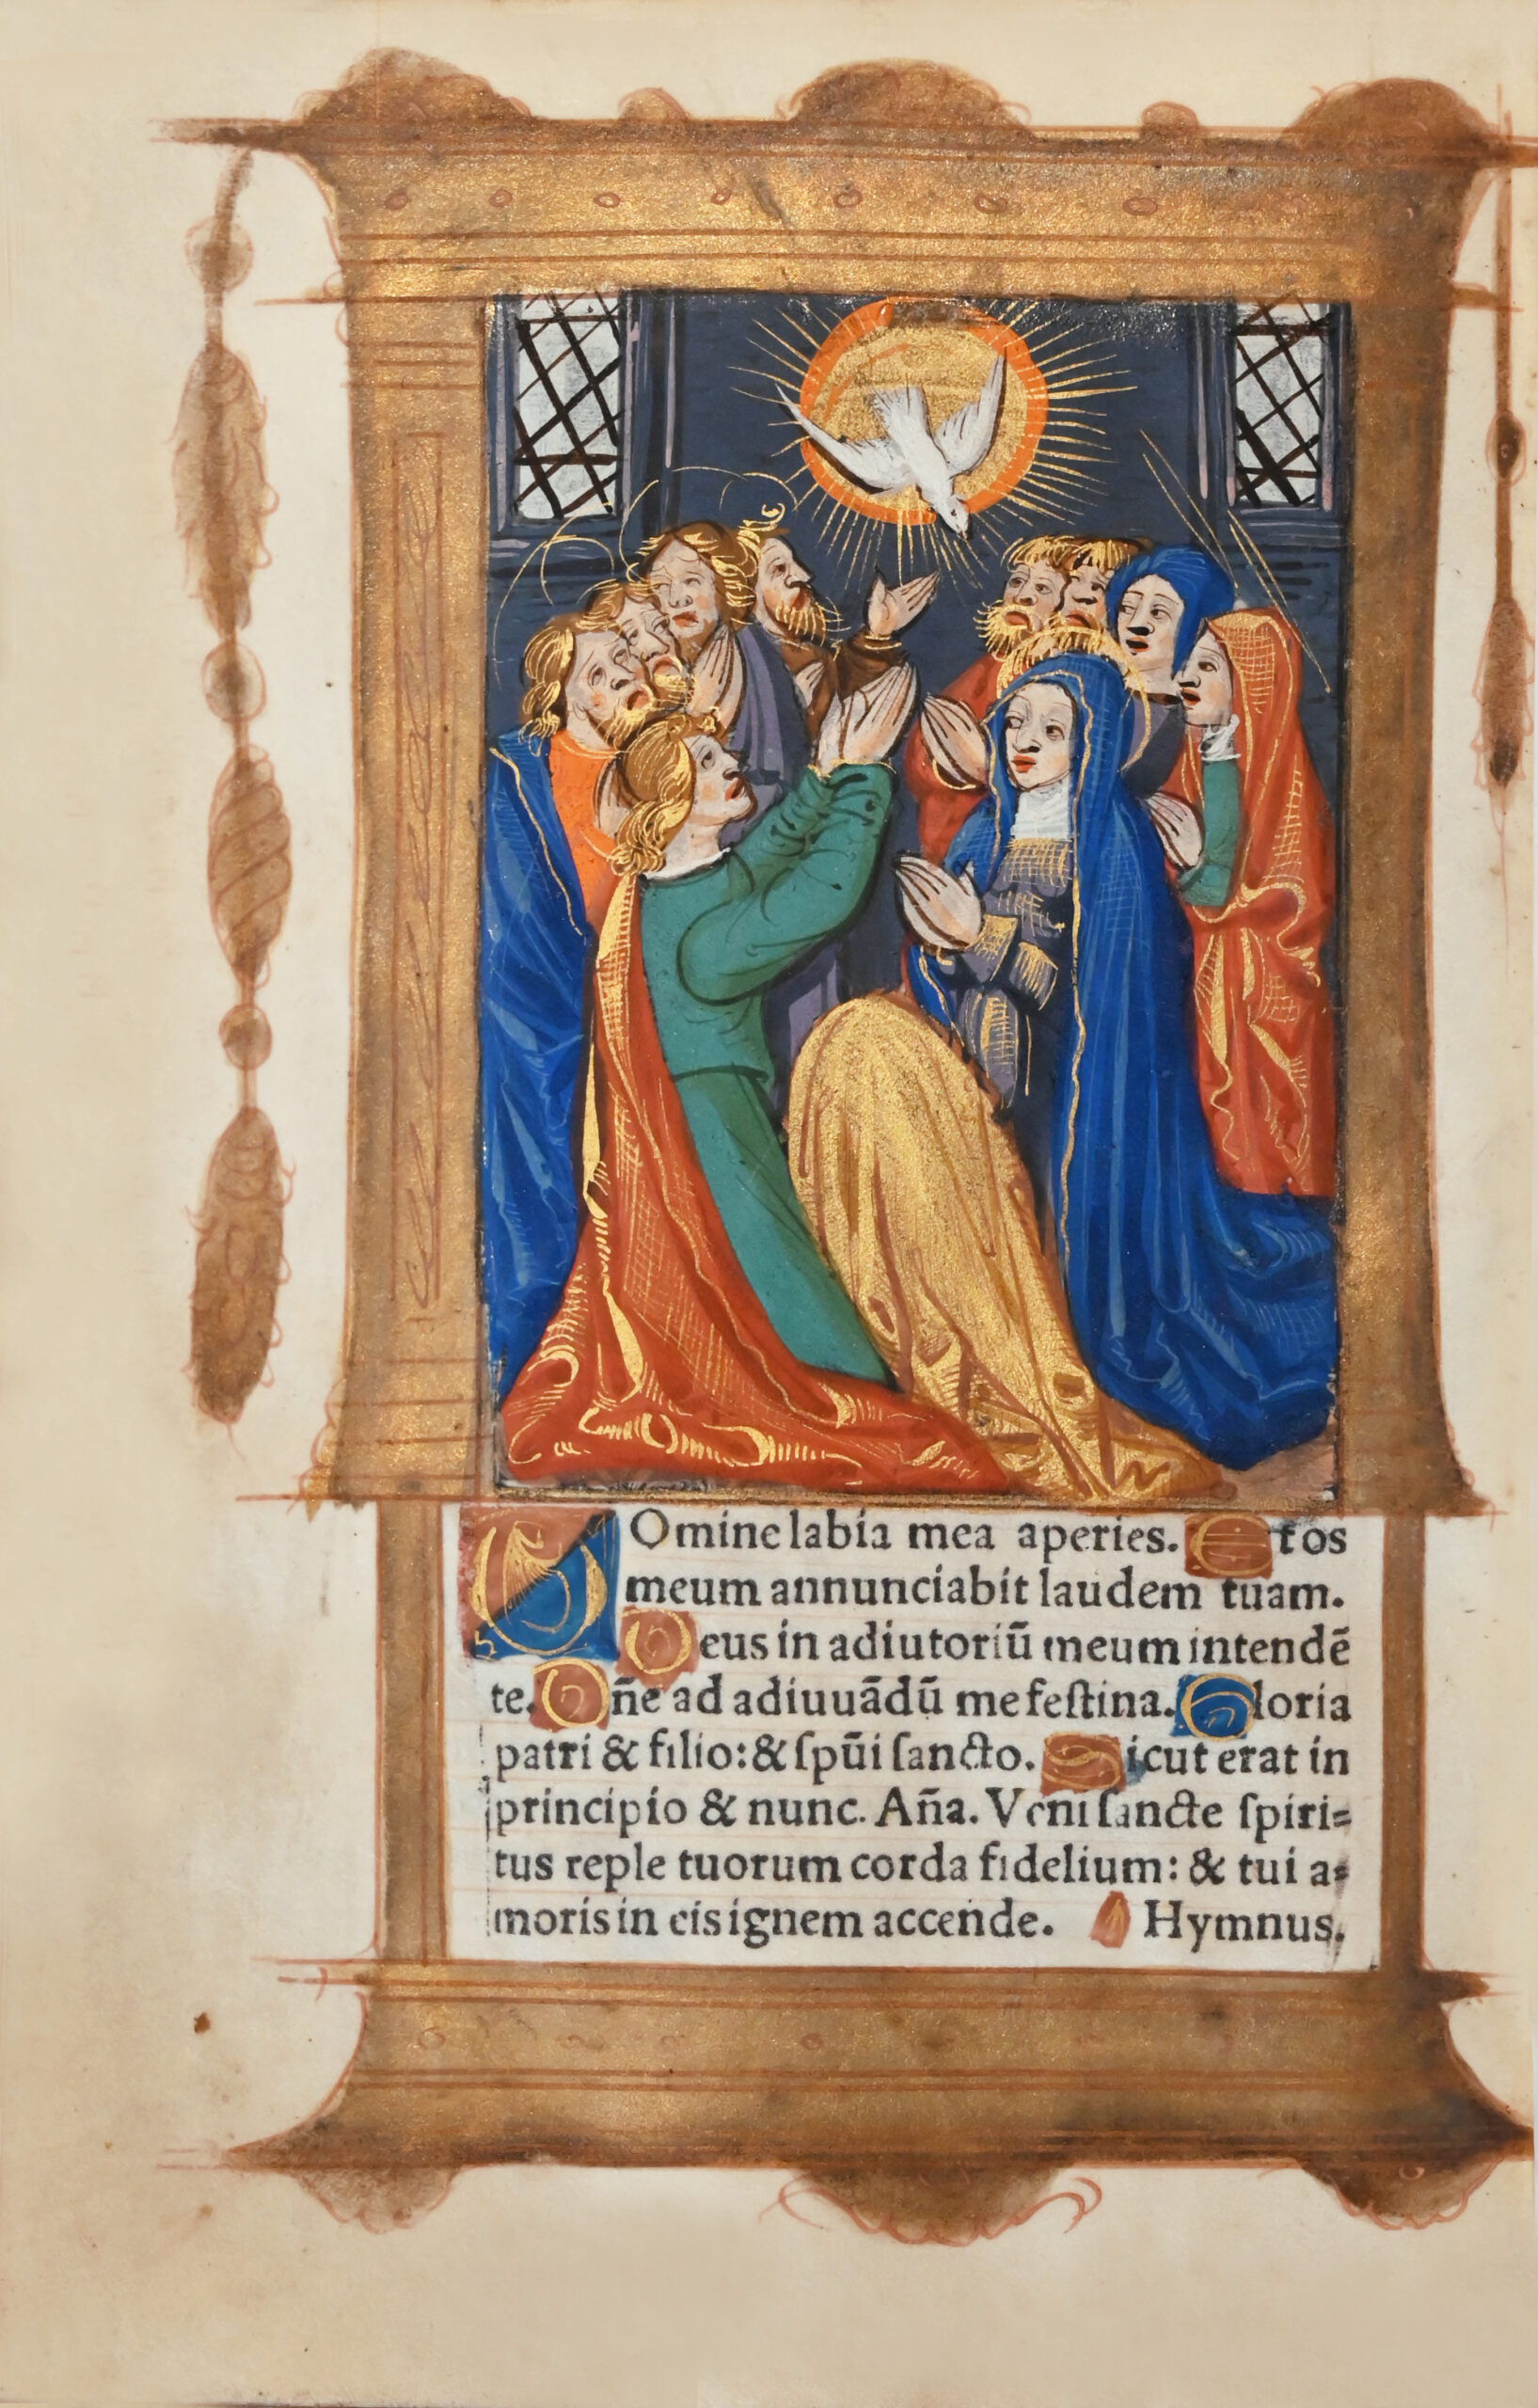 DOmine labia mea aperies. Et os
meum annunciabit laudem tuam.
Deus in adiutoriū meum intendē
te. Dñe ad adiuuādū me festina. Gloria
patri & filio: & ſpūi ſancto. Sicut erat in
principio & nunc. Aña. Veni ſancte ſpiri=
tus reple tuorum corda fidelium: & tui a=
moris in eis ignem accende. Hymnus.